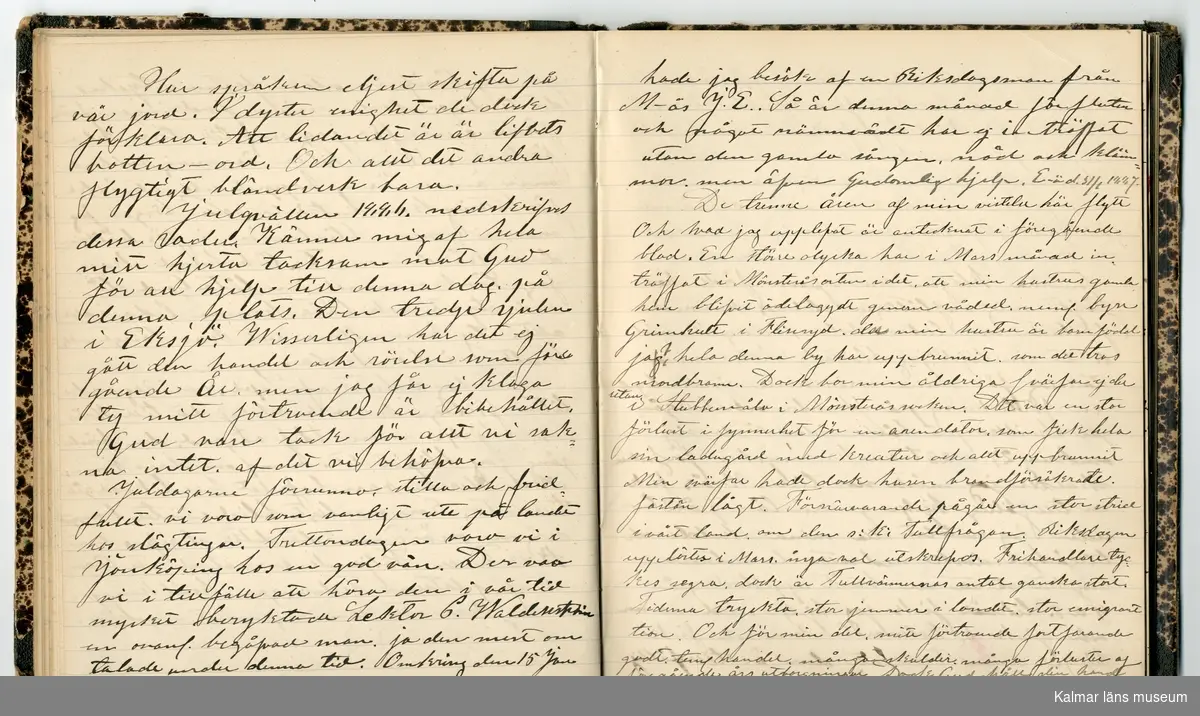 Hur språken eljest skifta på
vår jord. I dyster enighet de dock
förklara. Att lidandet är är lifvets
botten-ord. Och allt det andra
flygtigt bländverk bara.
Julqvällen 1886. nedskrifvet
dessa rader. Känner mig af hela
mitt hjerta tacksam mot Gud
för all hjelp till denna dag, på
denna plats. Den tredje julen
i Eksjö. Wisserligen har det ej
gått den handel och rörelse som före
gående År, men jag får ej klaga
ty mitt förtroende är bibehållet.
Gud vare tack för allt vi sak=
na intet. af det vi behöfva.
Juldagarne förrunno, stilla och frid=
fullt. vi voro som vanligt ute på landet
hos slägtingar. Trettondagen voro vi i
Jönköping hos en god vän. Der voro
vi i tillfälle att höra den i vår tid
mycket beryktade Lektor P. Waldenström
en ovanl. begåfvad man. ja den mest om
talade under denna tid. Omkring den 15 Jan
hade jag besök af en Riksdagsman från
M-ås J. E.. Så är denna månad förfluten
och något nämnvärdt har ej inträffat
utan den gamla sången, nöd och kläm=
mor. men äfven Gudomlig hjelp. E-ö d. 31/1 1887.
De trenne åren af min vistelse här flytt
Och hvad jag upplefvat är antecknat i föregående
blad. En större olycka har i Mars månad in-
träffat i Mönsteråsorten i det, att min hustrus gamla
hem blifvit ödelaggdt genom vådeld. neml. byn
Grimhult i Fliseryd. der min hustru är barnfödd
ja hela denna by har uppbrunnit. som det tros
mordbrann. Dock bor min åldriga svärfar ej der
utan
i Stubbemåla i Mönsterås socken. Det var en stor
förlust i synnerhet för en arendator. som fick hela
sin ladugård med kreatur och allt uppbrunnit
Min svärfar hade dock husen brandförsäkrade.
fastän lågt. Förnärvarande pågår en stor strid
i vårt land. om den s: k: Tullfrågan. Riksdagen
upplöstes i Mars. nya val utskrefvos. Frihandlare tyc-
kes segra, dock är Tullvännernas antal ganska stort.
Tiderna tryckta, stor jemmer i landet. stor emigrant
tion. Och för min del, mitt förtroende fortfarande
godt. tung handel. många skulder. många förluster af
föregående års utfordringar. Dock Gud håll sin hand
Kalmar läns museum